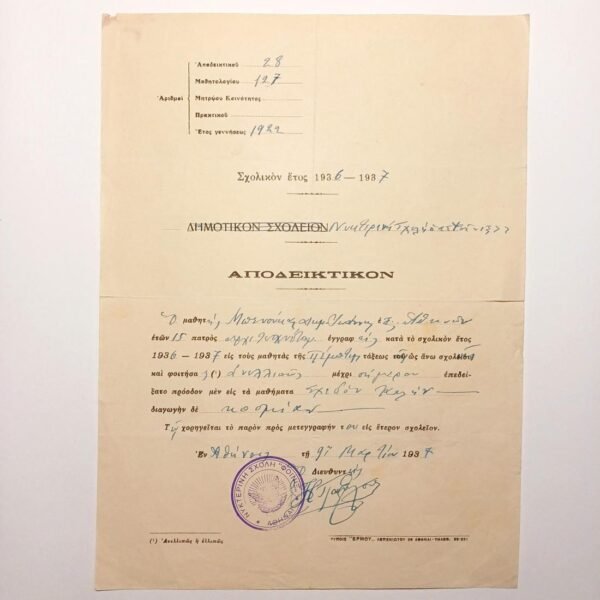 Ἀποδεικτικοῦ 28
Μαθητολογίου 127
Ἀριθμοὶ Μητρῴου Κοινότητος
Πρακτικοῦ
Ἔτος γεννήσεως 1922
Σχολικὸν ἔτος 1936 — 1937
ΔΗΜΟΤΙΚΟΝ ΣΧΟΛΕΙΟΝ Νυκτερινὴ
ΑΠΟΔΕΙΚΤΙΚΟΝ
Ὁ μαθητὴς ἐξ Ἀθηνῶν
ἐτῶν 15 πατρὸς ἐγγραφεὶς κατὰ τὸ σχολικὸν ἔτος
1936 - 1937 εἰς τοὺς μαθητὰς τῆς πέμπτης τάξεως τοῦ ὡς ἄνω σχολείου
καὶ φοιτήσας (¹) ἀνελλιπῶς μέχρι σήμερον ἐπεδεί-
ξατο πρόοδον μὲν εἰς τὰ μαθήματα σχεδὸν καλῶς
διαγωγὴν δὲ κοσμίαν
Τῷ χορηγεῖται τὸ παρὸν πρὸς μετεγγραφήν του εἰς ἕτερον σχολεῖον.
Ἐν Ἀθήναις τῇ 9ῃ Μαρτίου 1937
Ὁ Διευθυντὴς
ΝΥΚΤΕΡΙΝΗ ΣΧΟΛΗ "ΦΟΙΝΙΞ" ΑΘΗΝΑΙ
(¹) Ἀνελλιπῶς ἢ ἐλλιπῶς
ΤΥΠΟΙΣ "ΕΡΜΟΥ"